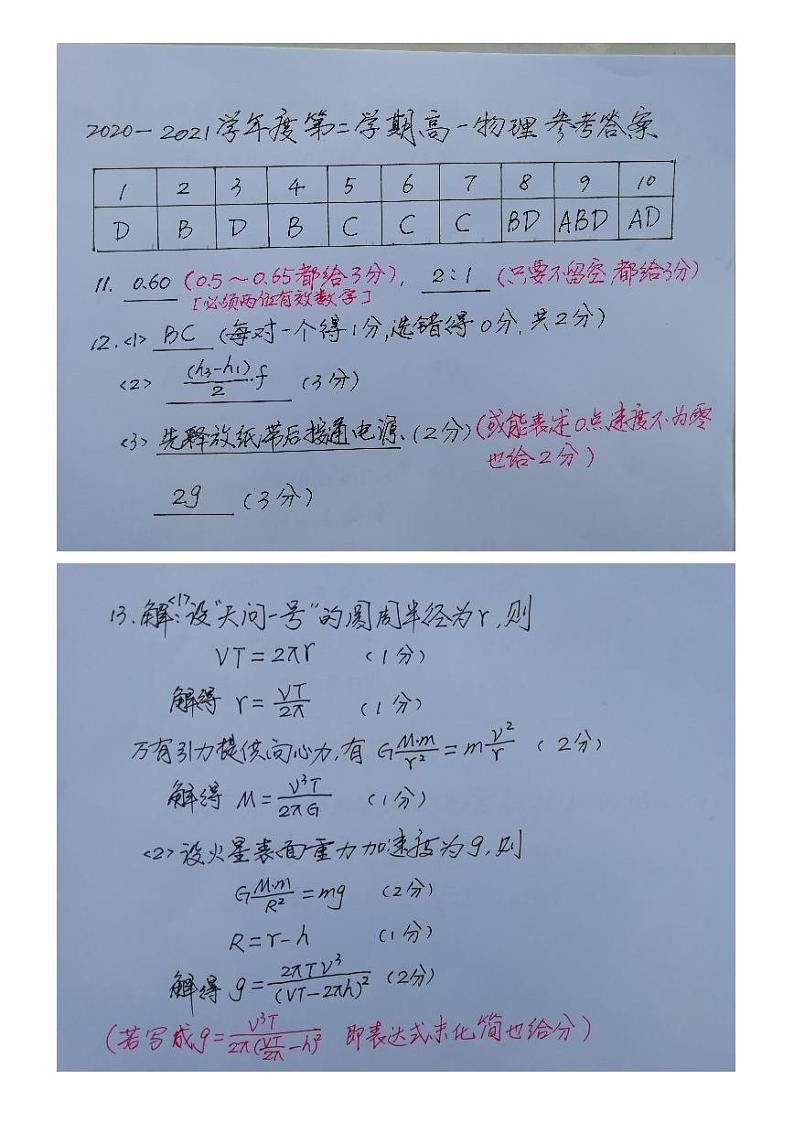 2020-2021学年度第二学期高一物理参考答案
1 2 3 4 5 6 7 8 9 10
D B D B C C C BD ABD AD
11. 0.60 (0.5～0.65都给3分), 2:1 (只要不留空,都给3分)
[必须两位有效数字]
12.<1> BC (每对一个得1分,选错得0分,共2分)
<2> (h₃-h₁)/2·f (3分)
<3> 先释放纸带后接通电源、(2分)(或能表述O点速度不为零
也给2分)
2g (3分)
13.解:<1>设"天问一号"的圆周半径为r,则
VT=2πr (1分)
解得 r=VT/2π (1分)
万有引力提供向心力,有 G M·m/r²=m v²/r (2分)
解得 M=V³T/2πG (1分)
<2>设火星表面重力加速度为g,则
G M·m/R²=mg (2分)
R=r-h (1分)
解得 g=2πTV³/(VT-2πh)² (2分)
(若写成g=V³T/2π(VT/2π-h)² 即表达式未化简也给分)